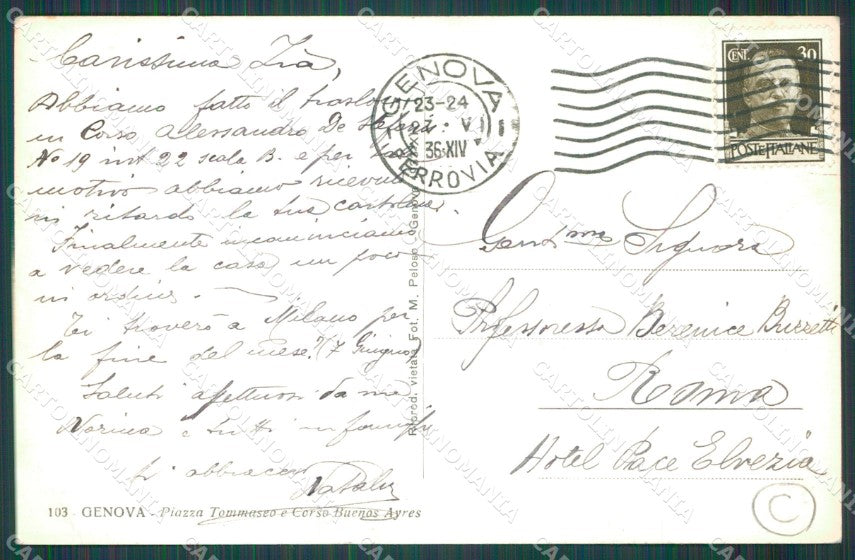 Carissima Zia,
Abbiamo fatto il trasloco
in Corso Alessandro De Stefanis
No 19 int 22 scala B. e per tal
motivo abbiamo ricevuto
in ritardo la tua cartolina.
Finalmente incominciamo
a vedere la casa un poco
in ordine.
Ti troverò a Milano per
la fine del mese? (7 Giugno)
Saluti affettuosi da me
Norina e tutti in famiglia
Ti abbraccio
Natale
103 - GENOVA - Piazza Tommaseo e Corso Buenos Ayres
Riprod. Vietata Fot. M. Peloso - Genova
GENOVA
23-24
VI
36·XIV
FERROVIA
CENT. 30
POSTE ITALIANE
Gent.ma Signora
Professoressa Berenice Buzzetti
Roma
Hotel Pace Elvezia
C
CARTOLINOMANIA